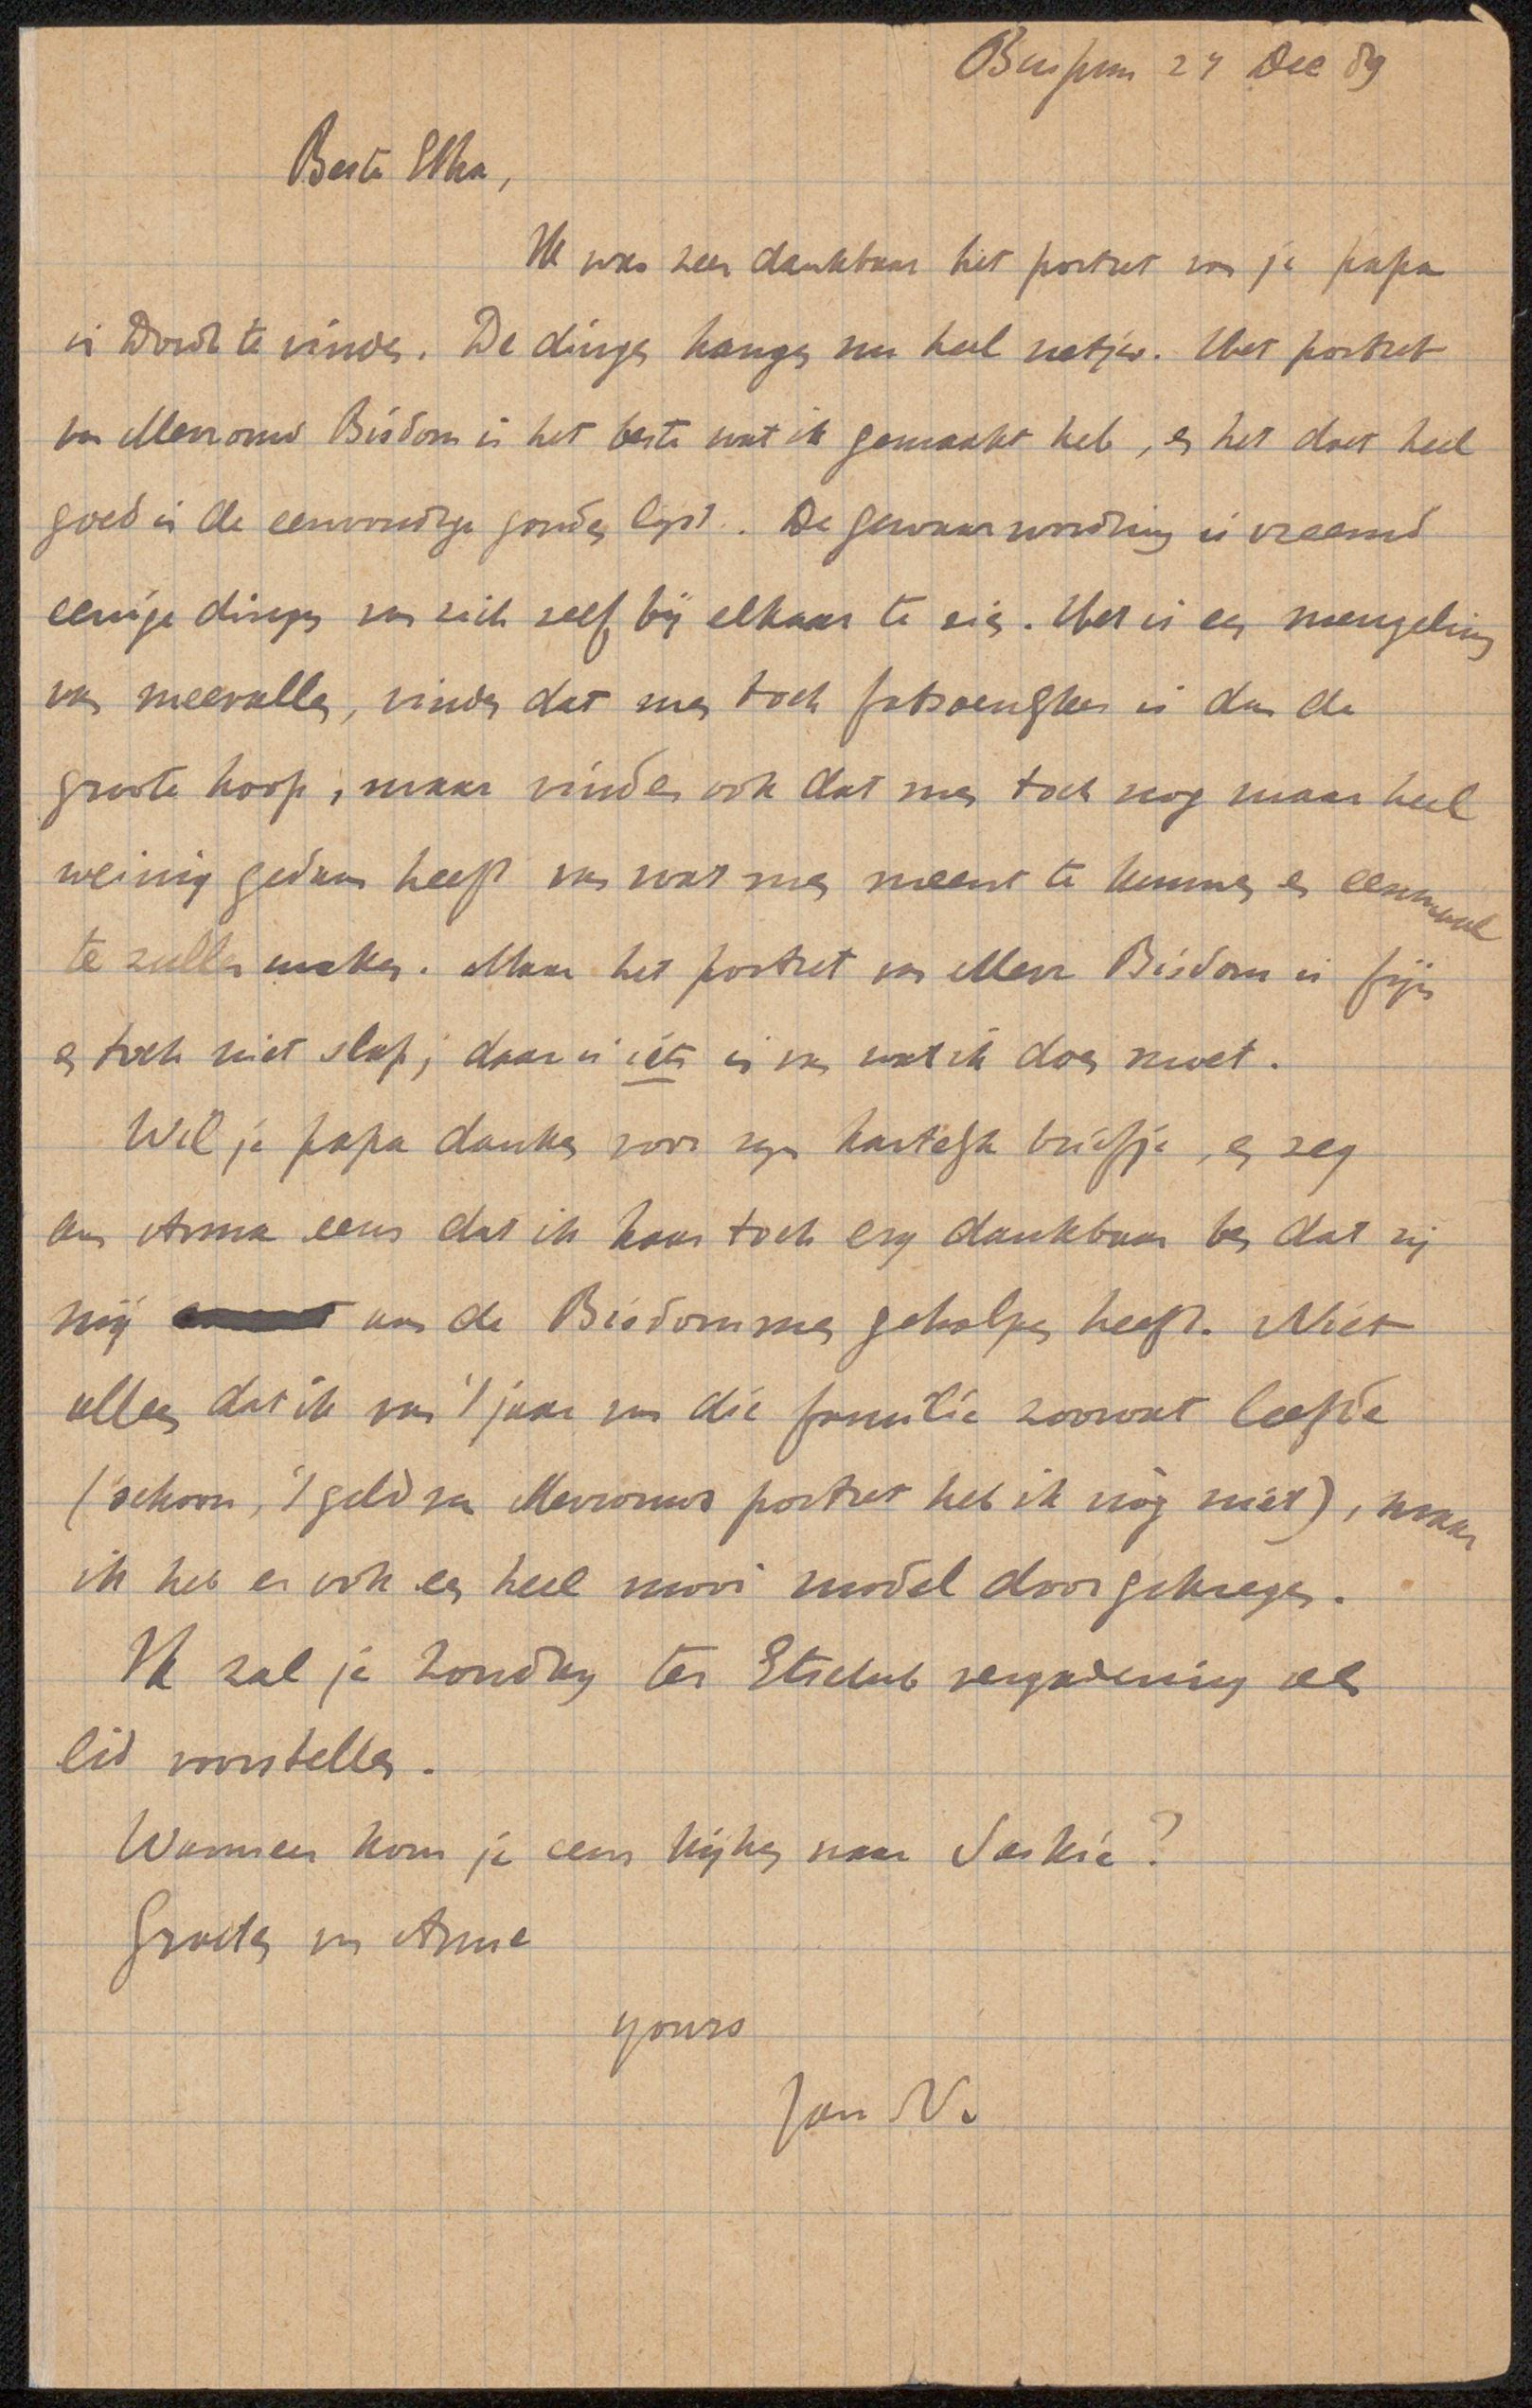 Bussum 24 Dec 89
Beste Etha,
Ik was zeer dankbaar het portret van je papa
in Dordt te vinden. De dingen hangen nu heel netjes. Het portret
van Mevrouw Bisdom is het beste wat ik gemaakt heb, en het doet heel
goed in de eenvoudige gouden lyst. De gewaarwording is vreemd
eenige dingen van zich zelf bij elkaar te zien. Het is een mengeling
van meevallen, vinden dat men toch fatsoenlyker is dan de
groote hoop; maar vinden ook dat men toch nog maar heel
weinig gedaan heeft van wat men meent te kunnen en eenmaal
te zullen maken. Maar het portret van Mevr Bisdom is fijn
en toch niet slap; daar is iets in van wat ik doen moet.
Wil je papa danken voor zyn hartelyk briefje, en zeg
aan Anna eens dat ik haar toch erg dankbaar ben dat zij
mij aan de Bisdommen geholpen heeft. Niet
alleen dat ik van 't jaar van die familie zoowat leefde
(schoon, 't geld van Mevrouws portret heb ik nòg niet), maar
ik heb er ook een heel mooi model door gekregen.
Ik zal je Zondag ter Etsclub vergadering als
lid voorstellen.
Wanneer kom je eens kijken naar Saskia?
Groeten van Anne
yours
Jan V.